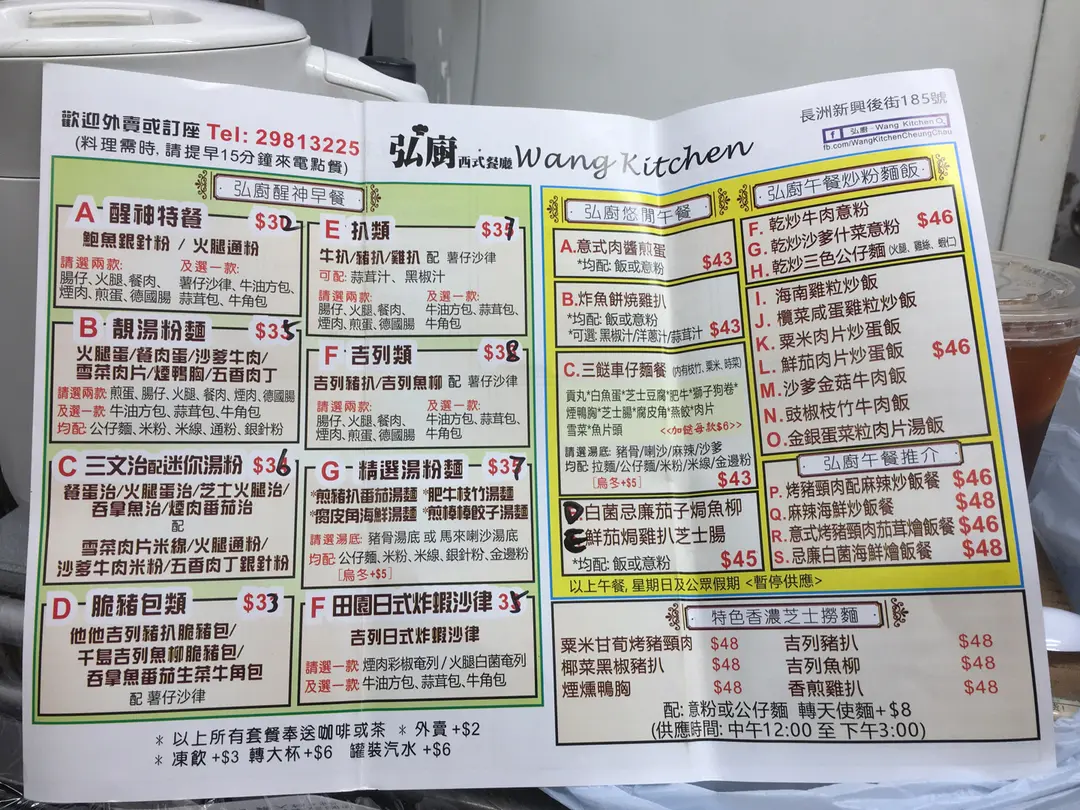 歡迎外賣或訂座 Tel: 29813225
(料理需時,請提早15分鐘來電點餐)
弘廚西式餐廳 Wang Kitchen
長洲新興後街185號
f 弘廚 - Wang Kitchen
fb.com/WangKitchenCheungChau
弘廚醒神早餐
A 醒神特餐 $32
鮑魚銀針粉 / 火腿通粉
請選兩款: 及選一款:
腸仔、火腿、餐肉、 薯仔沙律、牛油方包、
煙肉、煎蛋、德國腸 蒜茸包、牛角包
B 靚湯粉麵 $35
火腿蛋/餐肉蛋/沙爹牛肉/
雪菜肉片/煙鴨胸/五香肉丁
請選兩款: 煎蛋、腸仔、火腿、餐肉、煙肉、德國腸
及選一款: 牛油方包、蒜茸包、牛角包
均配: 公仔麵、米粉、米線、通粉、銀針粉
C 三文治配迷你湯粉 $36
餐蛋治/火腿蛋治/芝士火腿治/
吞拿魚治/煙肉番茄治
配
雪菜肉片米線/火腿通粉/
沙爹牛肉米粉/五香肉丁銀針粉
D 脆豬包類 $33
他他吉列豬扒脆豬包/
千島吉列魚柳脆豬包/
吞拿魚番茄生菜牛角包
配 薯仔沙律
E 扒類 $37
牛扒/豬扒/雞扒 配 薯仔沙律
可配: 蒜茸汁、黑椒汁
請選兩款: 及選一款:
腸仔、火腿、餐肉、 牛油方包、蒜茸包、
煙肉、煎蛋、德國腸 牛角包
F 吉列類 $38
吉列豬扒/吉列魚柳 配 薯仔沙律
請選兩款: 及選一款:
腸仔、火腿、餐肉、 牛油方包、蒜茸包、
煙肉、煎蛋、德國腸 牛角包
G 精選湯粉麵 $37
*煎豬扒番茄湯麵 *肥牛枝竹湯麵
*腐皮角海鮮湯麵 *煎棒棒餃子湯麵
請選湯底: 豬骨湯底 或 馬來喇沙湯底
均配: 公仔麵、米粉、米線、銀針粉、金邊粉
[烏冬+$5]
F 田園日式炸蝦沙律 35
吉列日式炸蝦沙律
請選一款: 煙肉彩椒奄列 / 火腿白菌奄列
及選一款: 牛油方包、蒜茸包、牛角包
* 以上所有套餐奉送咖啡或茶 * 外賣 +$2
* 凍飲 +$3 轉大杯+$6 罐裝汽水 +$6
弘廚悠閒午餐
A.意式肉醬煎蛋
*均配: 飯或意粉 $43
B.炸魚餅燒雞扒
*均配: 飯或意粉
*可選: 黑椒汁/洋蔥汁/蒜茸汁 $43
C.三餸車仔麵餐 (內有枝竹, 粟米, 時菜)
貢丸*白魚蛋*芝士豆腐*肥牛*獅子狗卷*
煙鴨胸*芝士腸*腐皮角*燕餃*肉片
雪菜*魚片頭 <<加餸每款$6>>
請選湯底: 豬骨/喇沙/麻辣/沙爹
均配: 拉麵/公仔麵/米粉/米線/金邊粉
[烏冬+$5] $43
D白菌忌廉茄子焗魚柳
E鮮茄焗雞扒芝士腸
*均配: 飯或意粉 $45
弘廚午餐炒粉麵飯
F. 乾炒牛肉意粉
G. 乾炒沙爹什菜意粉 $46
H. 乾炒三色公仔麵 (火腿, 雞絲, 蝦仁)
I. 海南雞粒炒飯
J. 欖菜咸蛋雞粒炒飯
K. 粟米肉片炒蛋飯
L. 鮮茄肉片炒蛋飯 $46
M.沙爹金菇牛肉飯
N. 豉椒枝竹牛肉飯
O.金銀蛋菜粒肉片湯飯
弘廚午餐推介
P.烤豬頸肉配麻辣炒飯餐 $46
Q.麻辣海鮮炒飯餐 $48
R.意式烤豬頸肉茄茸燴飯餐 $46
S.忌廉白菌海鮮燴飯餐 $48
以上午餐, 星期日及公眾假期 <暫停供應>
特色香濃芝士撈麵
粟米甘荀烤豬頸肉 $48 吉列豬扒 $48
椰菜黑椒豬扒 $48 吉列魚柳 $48
煙燻鴨胸 $48 香煎雞扒 $48
配: 意粉或公仔麵 轉天使麵+$8
(供應時間: 中午12:00 至 下午3:00)